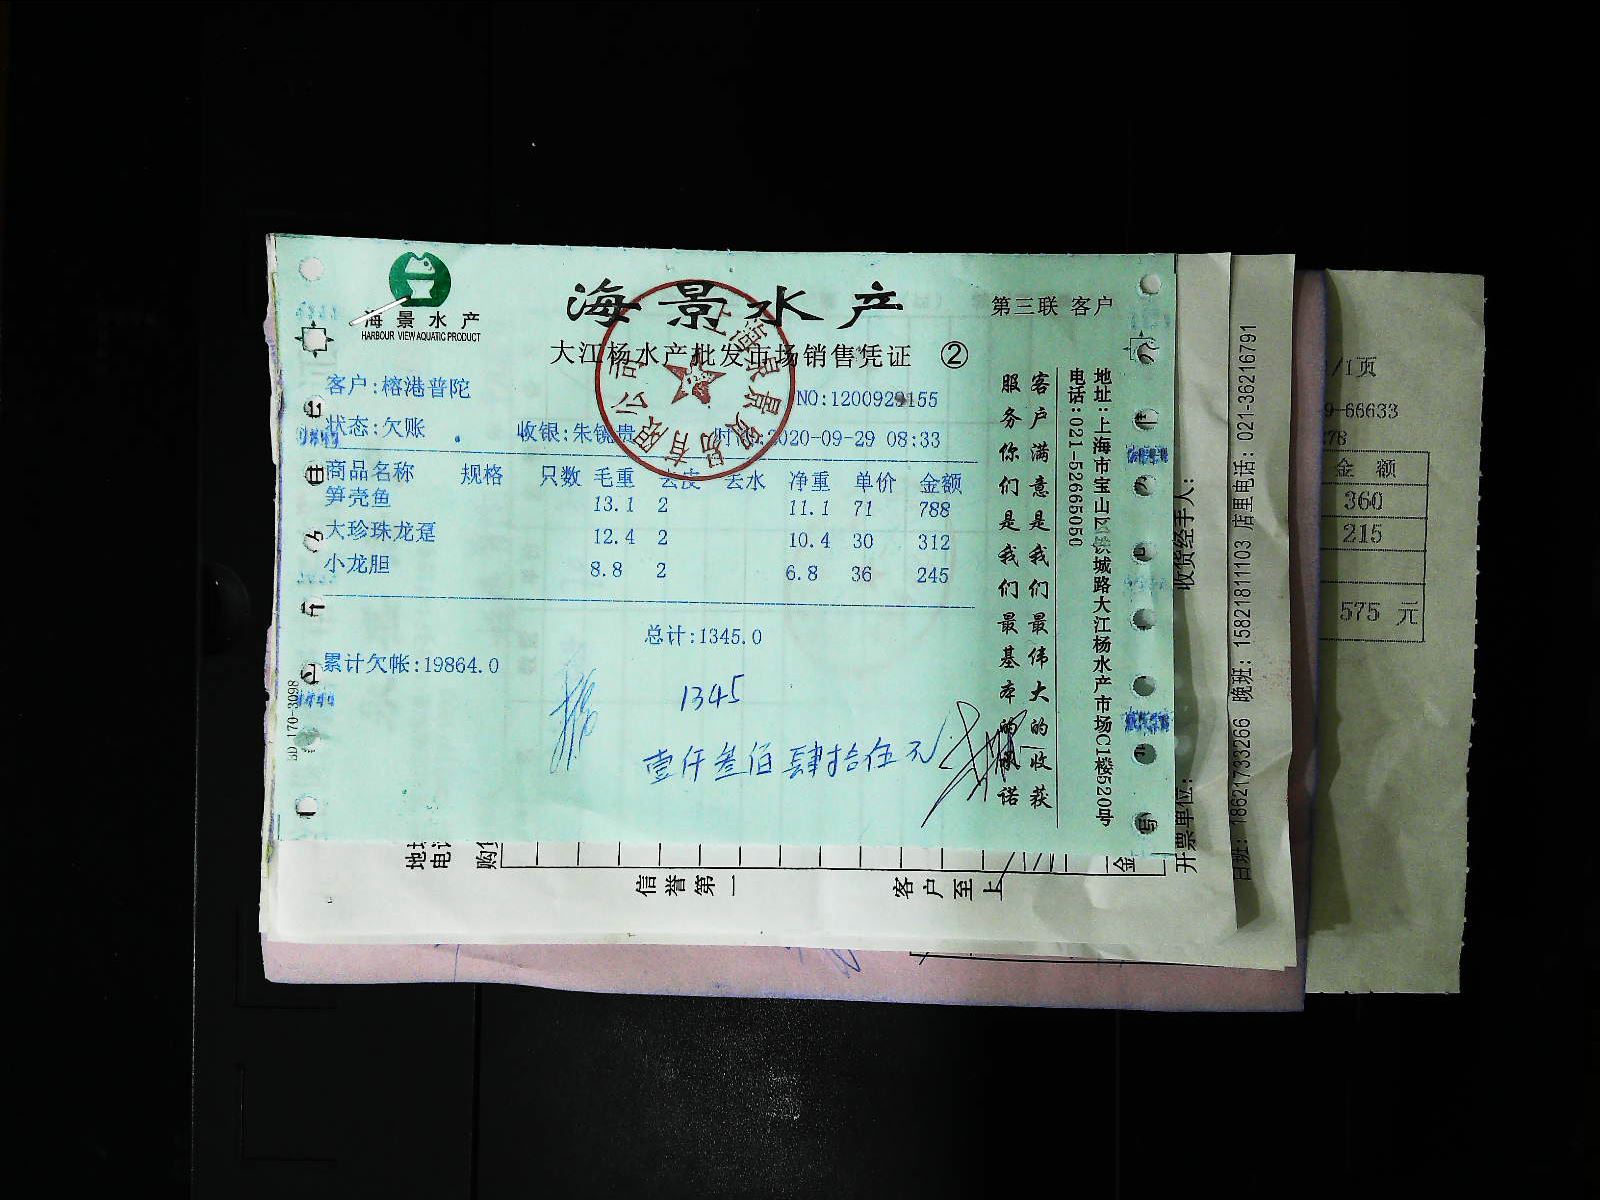 海景水产
HARBOUR VIEW AQUATIC PRODUCT
海景水产
第三联 客户
大江杨水产批发市场销售凭证 ②
客户:榕港普陀
NO:1200929155
状态:欠账 收银:朱锐贵 时间:2020-09-29 08:33
商品名称 规格 只数 毛重 去皮 去水 净重 单价 金额
笋壳鱼 13.1 2 11.1 71 788
大珍珠龙趸 12.4 2 10.4 30 312
小龙胆 8.8 2 6.8 36 245
总计:1345.0
累计欠帐:19864.0
1345
壹仟叁佰肆拾伍元
客户满意是我们最伟大的收获
服务你们是我们最基本的诺
地址:上海市宝山区铁城路大江杨水产市场C1楼520号
电话:021-52665050
BD 170-3098
收货经手人:
开票单位:
白班: 18621733266 晚班: 15821811103 店里电话: 021-36216791
电
购
金
信誉第一
客户至上
/1页
9-66633
278
金额
360
215
575 元